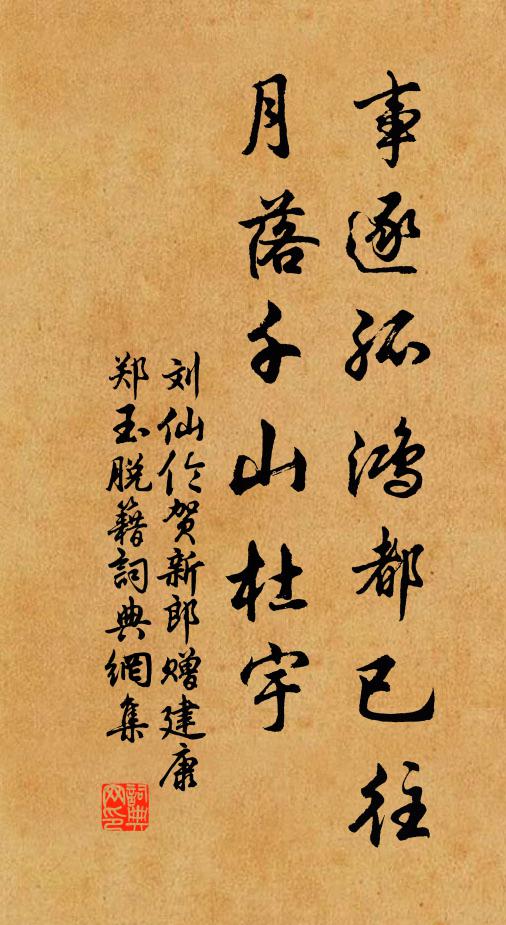 事逐孤鸿都已往
月落千山杜宇
刘仙伦贺新郎赠建康
郑玉脱籍詞典網集
詞典网印